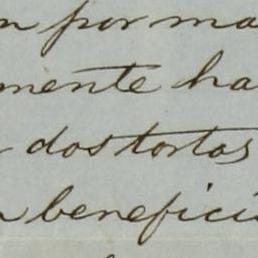 n por ma
mente ha
dos tortas
benefici